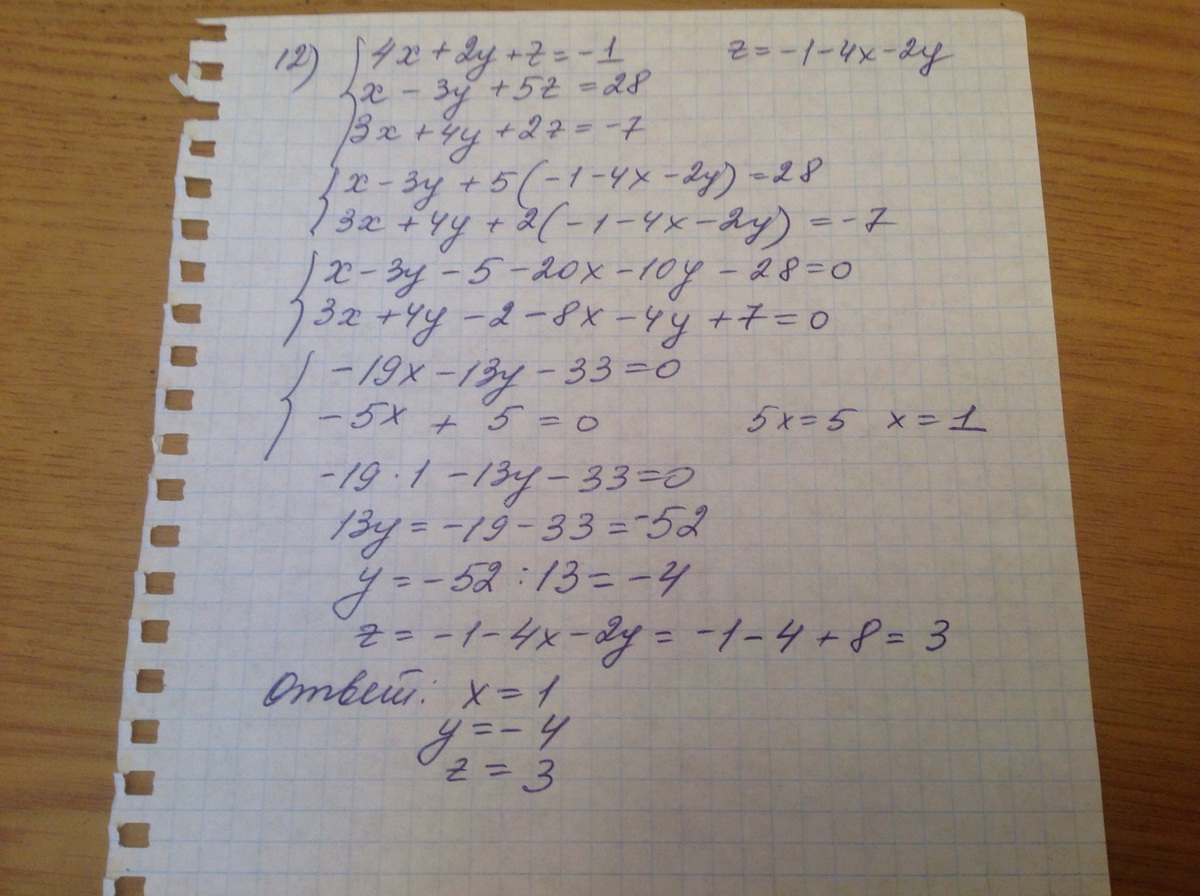 12) 4x + 2y + z = -1 z = -1 - 4x - 2y
x - 3y + 5z = 28
3x + 4y + 2z = -7
x - 3y + 5(-1 - 4x - 2y) = 28
3x + 4y + 2(-1 - 4x - 2y) = -7
x - 3y - 5 - 20x - 10y - 28 = 0
3x + 4y - 2 - 8x - 4y + 7 = 0
-19x - 13y - 33 = 0
-5x + 5 = 0 5x = 5 x = 1
-19 · 1 - 13y - 33 = 0
13y = -19 - 33 = -52
y = -52 : 13 = -4
z = -1 - 4x - 2y = -1 - 4 + 8 = 3
Ответ: x = 1
y = -4
z = 3